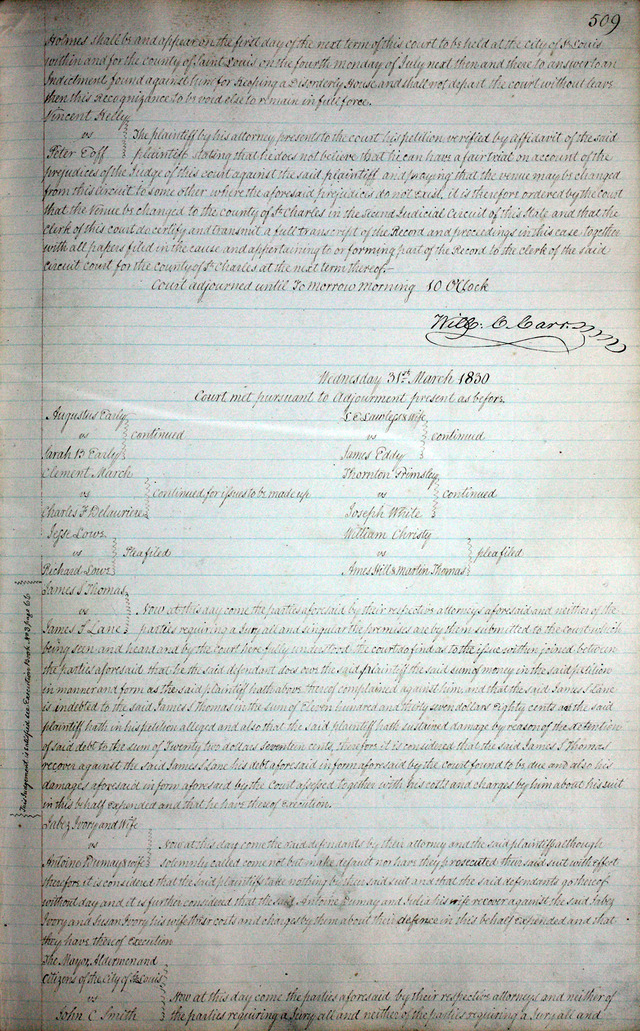 509
Holmes shall be and appear on the first day of the next term of this court to be held at the city of St Louis
within and for the county of Saint Louis on the fourth monday of July next then and there to answer to an
Indictment found against him for Keeping a Disorderly House and shall not depart the court without leave
then this Recognizance to be void else to remain in full force.
Vincent Kelly
vs
Peter Goff
The plaintiff by his attorney presents to the court his petition verified by affidavit of the said
plaintiff stating that he does not believe that he can have a fair trial on account of the
prejudices of the Judge of this court against the said plaintiff and praying that the venue may be changed
from this circuit to some other where the aforesaid prejudices do not exist, it is therefore ordered by the court
that the venue be changed to the county of St Charles in the Second Judicial Circuit of this State and that the
clerk of this court do certify and transmit a full transcript of the Record and proceedings in this case together
with all papers filed in the cause and appertaining to or forming part of the Record to the clerk of the said
circuit court for the county of St Charles at the next term thereof.
Court adjourned until To Morrow Morning 10 O'Clock
Will. C. Carr
Wednesday 31st March 1830
Court met pursuant to Adjournment present as before.
Augustus Early
vs
Sarah B Early
continued
L E Lawless & wife
vs
James Eddy
continued
Clement March
vs
Charles F Delauriere
continued for issues to be made up
Thornton Grimsley
vs
Joseph White
continued
Jesse Lowe
vs
Richard Lowe
Plea filed
William Christy
vs
Ames Hill & Martin Thomas
plea filed
This judgement is satisfied see Execution Book No 3 page 66
James S Thomas
vs
James S Lane
Now at this day come the parties aforesaid by their respective attorneys aforesaid and neither of the
parties requiring a Jury all and singular the premises are by them submitted to the court which
being seen and heard and by the court here fully understood the court do find as to the issue within joined between
the parties aforesaid that he the said defendant does owe the said plaintiff the said sum of money in the said petition
in manner and form as the said plaintiff hath above thereof complained against him, and that the said James S Lane
is indebted to the said James S Thomas in the sum of Eleven hundred and thirty seven dollars Eighty cents as the said
plaintiff hath in his petition alleged and also that the said plaintiff hath sustained damage by reason of the detention
of said debt to the sum of Twenty two dollars seventeen cents, therefore it is considered that the said James S Thomas
recover against the said James S Lane his debt aforesaid in form aforesaid by the court found to be due and also his
damages aforesaid in form aforesaid by the Court assessed together with his costs and charges by him about his suit
in this behalf expended and that he have thereof execution.
Jabez Ivory and Wife
vs
Antoine Dumay & wife
Now at this day come the said defendants by their attorney and the said plaintiff although
solemnly called come not but make default nor have they prosecuted their said suit with effect
therefore it is considered that the said plaintiffs take nothing by their said suit and that the said defendants go thereof
without day and it is further considered that the said Antoine Dumay and Julia his wife recover against the said Jabez
Ivory and Susan Ivory his wife their costs and charges by them about their defence in this behalf expended and that
they have thereof execution
The Mayor, Aldermen and
Citizens of the City of St Louis
vs
John C Smith
Now at this day come the parties aforesaid by their respective attorneys and neither of
the parties requiring a Jury all and neither of the parties requiring a Jury all and